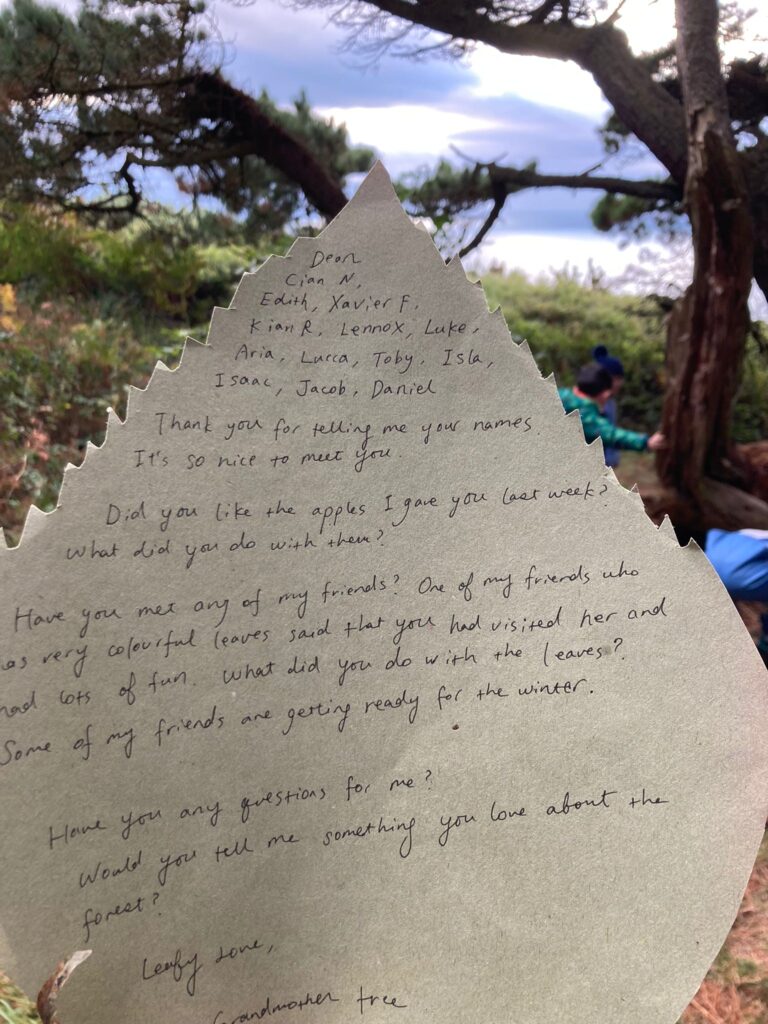 Dear
Cian N,
Edith, Xavier F,
Kian R, Lennox, Luke,
Aria, Lucca, Toby, Isla,
Isaac, Jacob, Daniel
Thank you for telling me your names.
It's so nice to meet you.
Did you like the apples I gave you last week?
What did you do with them?
Have you met any of my friends? One of my friends who
has very colourful leaves said that you had visited her and
had lots of fun. What did you do with the leaves?
Some of my friends are getting ready for the winter.
Have you any questions for me?
Would you tell me something you love about the
forest?
Leafy Love,
Grandmother tree